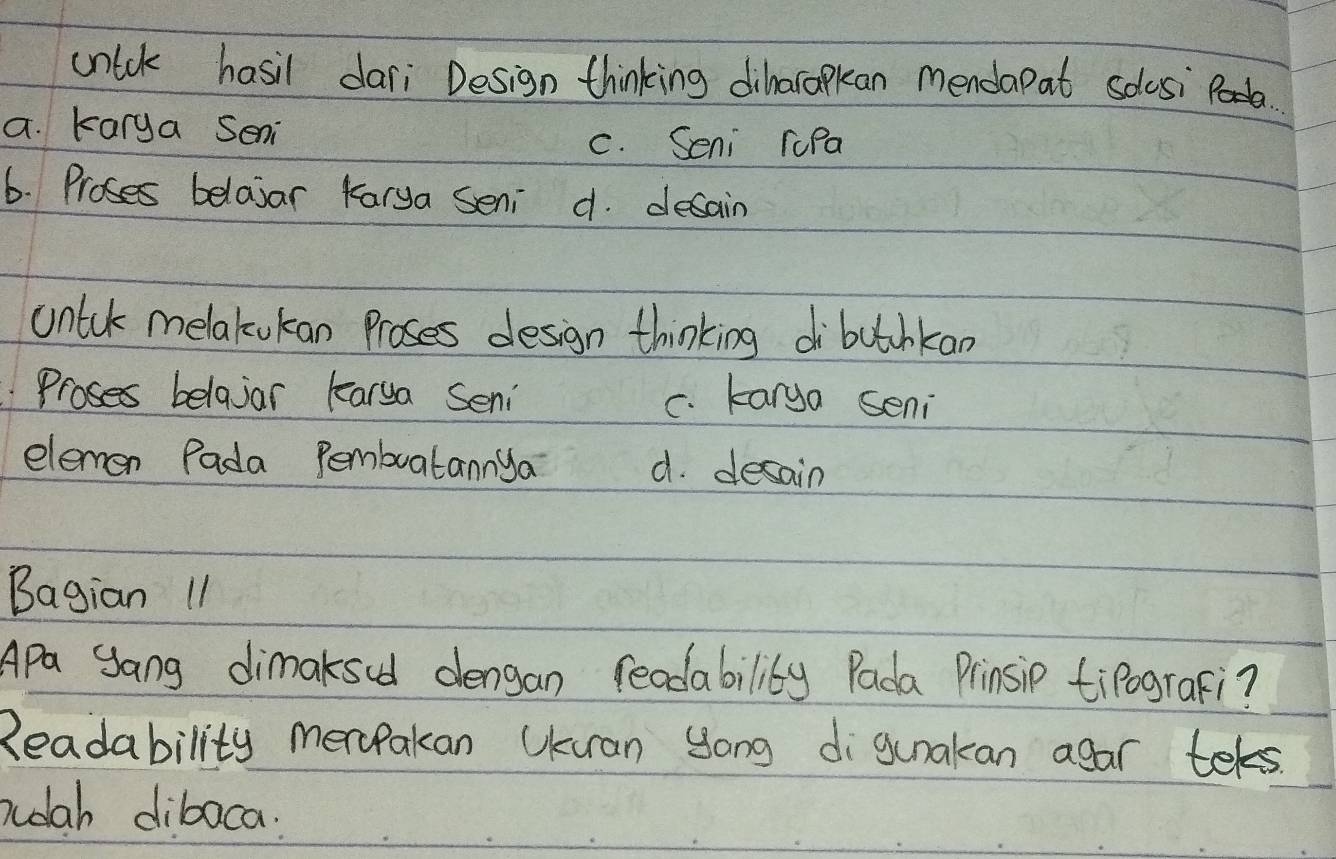 untuk hasil dari Design thinking diharapkan mendapat solusi Pada...
a. karya seni c. Seni rupa
b. Proses belajar karya seni d. desain
untuk melakukan Proses design thinking di butuhkan
. Proses belajar karya seni c. karya seni
elemen Pada Pembuatannya d. desain
Bagian 11
Apa yang dimaksud dengan readability Pada Prinsip tipografi?
Readability merupakan Ukuran yang di gunakan agar teks
mudah dibaca.